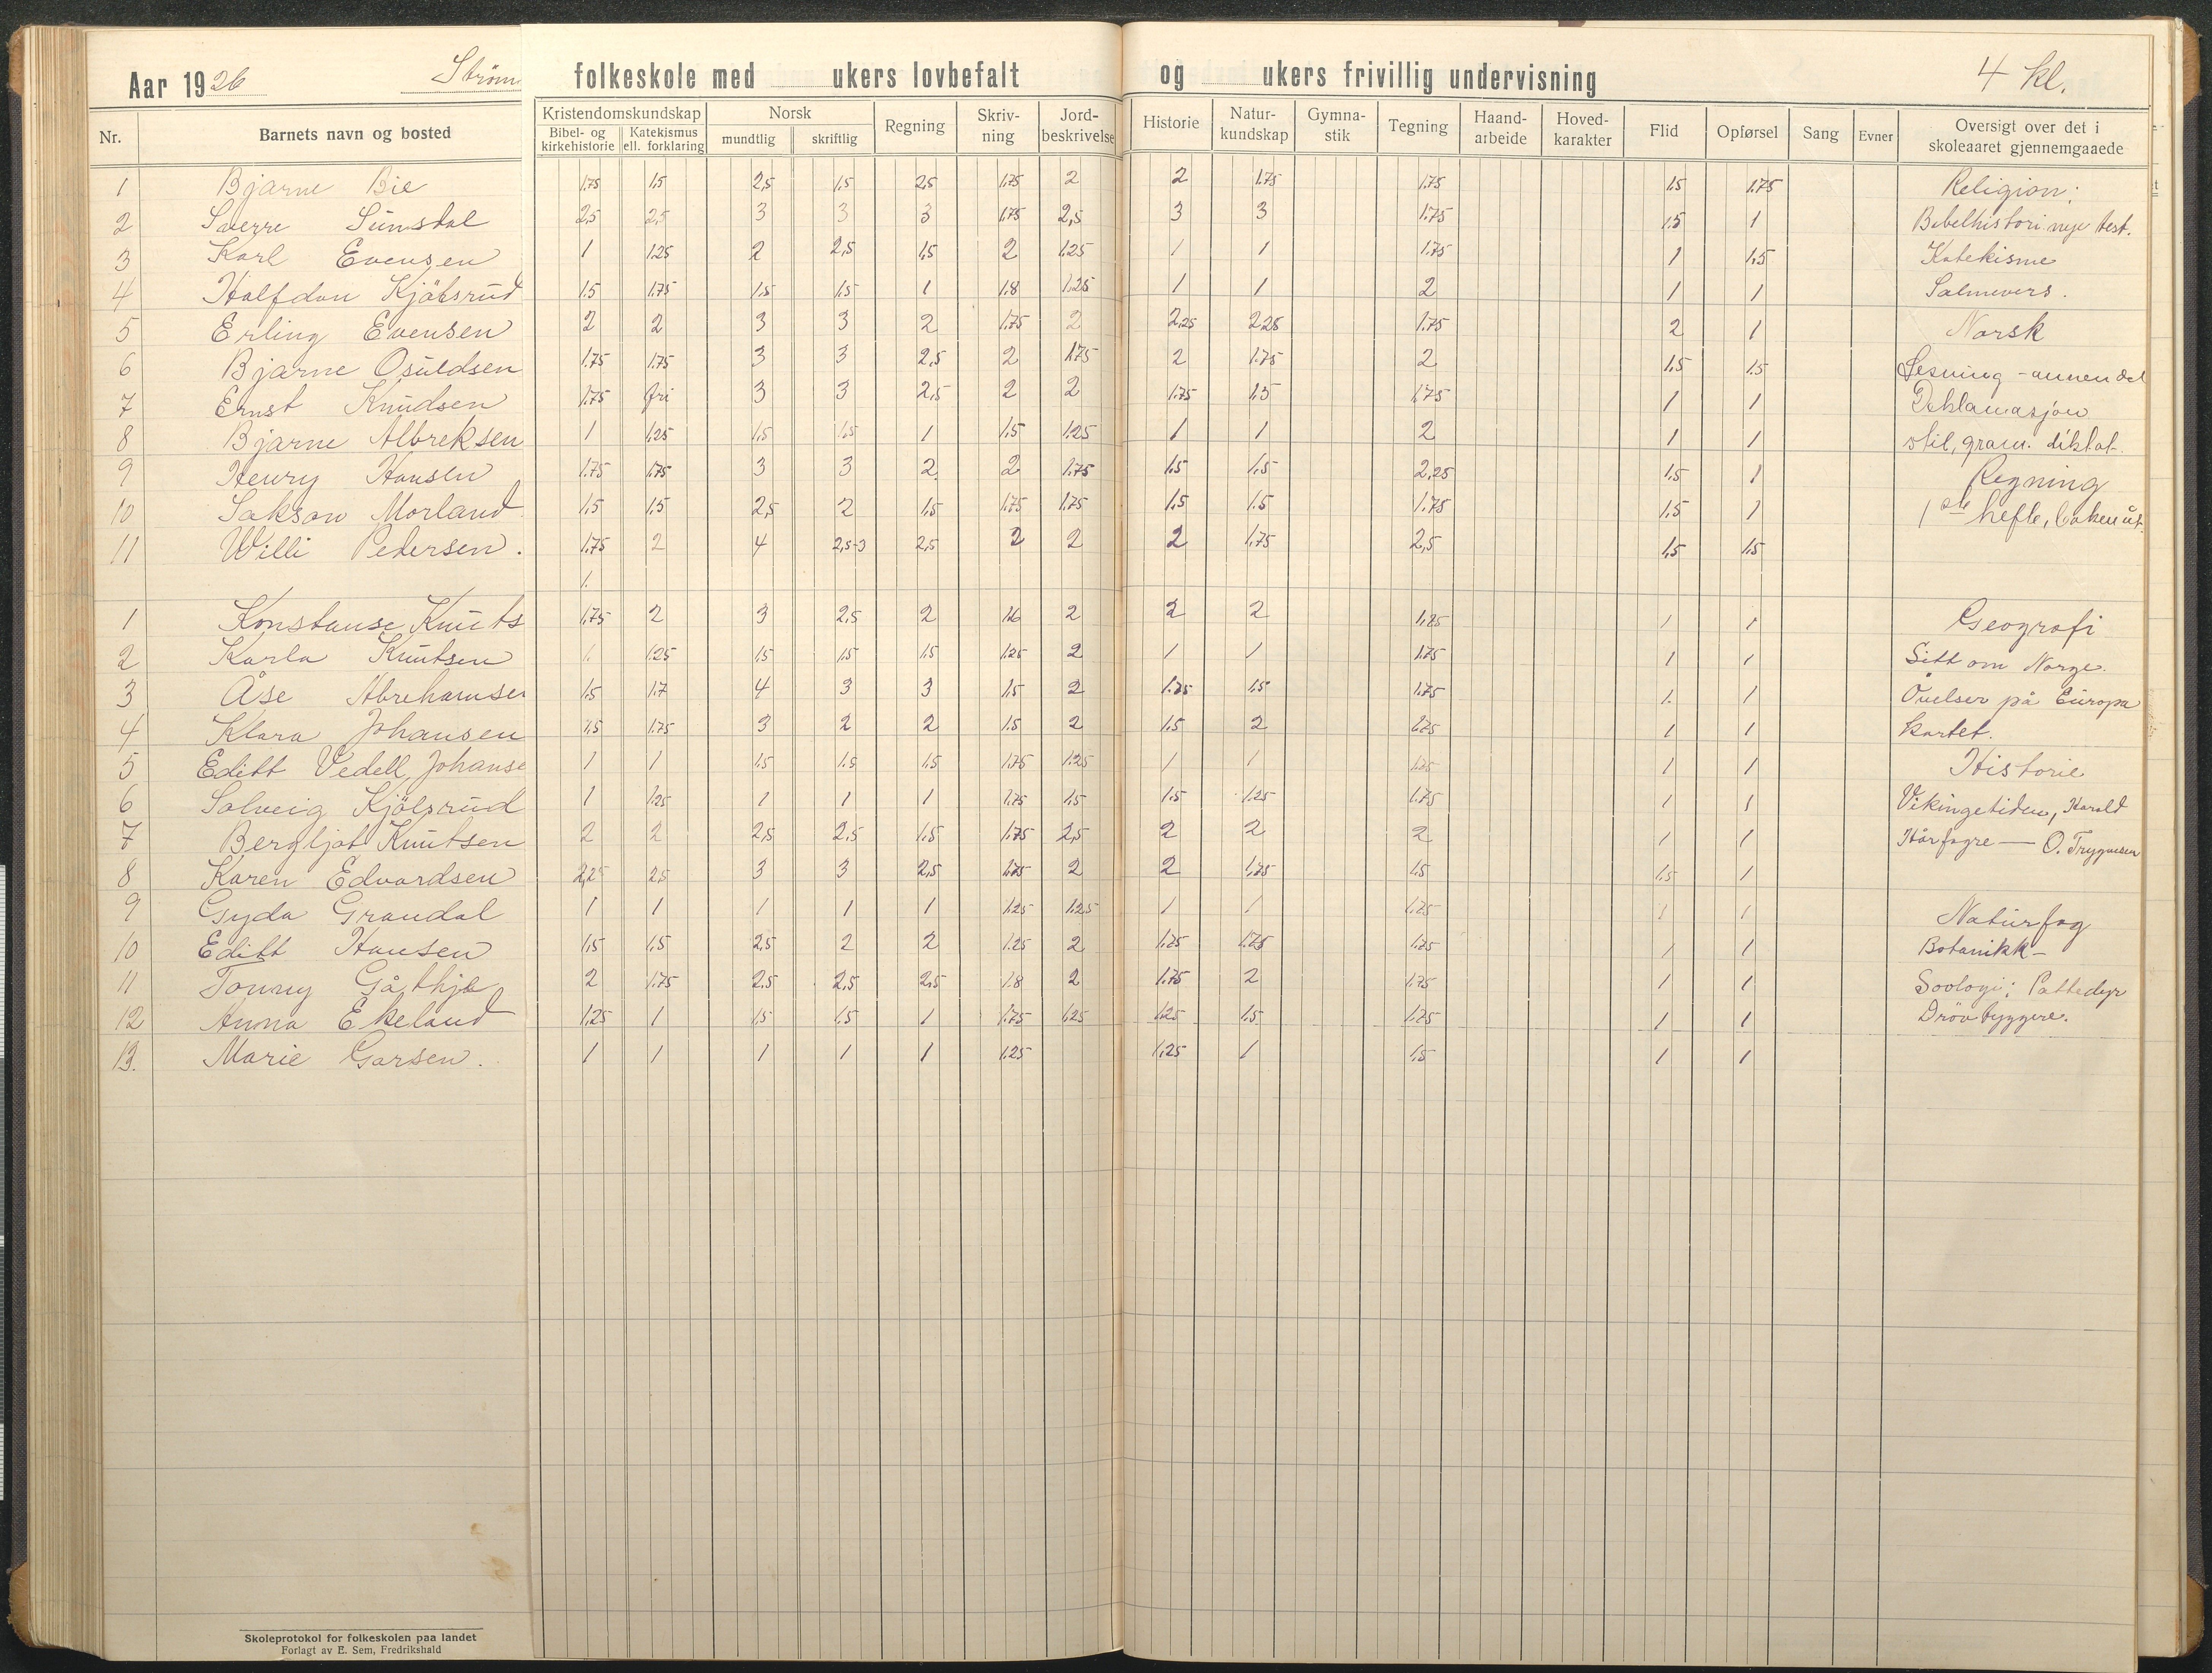 Aar 1926 Ström folkeskole med ukers lovbefalt og ukers frivillig undervisning 4 kl.
Nr. Barnets navn og bosted Kristendomskundskap Bibel- og kirkehistorie Katekismus ell. forklaring Norsk mundtlig skriftlig Regning Skriv-ning Jord-beskrivelse Historie Natur-kundskap Gymna-stik Tegning Haand-arbeide Hoved-karakter Flid Opførsel Sang Evner Oversigt over det i skoleaaret gjennemgaaede
1 Bjarne Bie 1.75 1.5 2,5 1.5 2,5 1.75 2 2 1.75 1.75 1.5 1.75 Religion:
2 Sverre Sunsdal 2,5 2,5 3 3 3 1.75 2,5 3 3 1.75 1.5 1 Bibelhistori nye test.
3 Karl Evensen 1 1.25 2 2,5 1.5 2 1.25 1 1 1.75 1 1.5 Katekisme
4 Halfdan Kjölsrud 1.5 1.75 1.5 1.5 1 1.8 1.25 1 1 2 1 1 Salmevers.
5 Erling Evensen 2 2 3 3 2 1.75 2 2,25 2,25 1.75 2 1 Norsk
6 Bjarne Osuldsen 1.75 1.75 3 3 2,5 2 1.75 2 1.75 2 1.5 1.5 Lesning - annen del
7 Ernst Knudsen 1.75 fri 3 3 2,5 2 2 1.75 1.5 1.75 1 1 Deklamasjon
8 Bjarne Albreksen 1 1.25 1.5 1.5 1 1.5 1.25 1 1 2 1 1 stil, gram. diktat.
9 Henry Hansen 1.75 1.75 3 3 2 2 1.75 1.5 1.5 2,25 1.5 1 Regning
10 Sakson Morland 1.5 1.5 2,5 2 1.5 1.75 1.75 1.5 1.5 1.75 1.5 1 1ste hefte, boken ut.
11 Willi Pedersen. 1.75 2 4 2,5-3 2,5 2 2 2 1.75 2,5 1.5 1.5
1.
1 Konstanse Knuts 1.75 2 3 2,5 2 1.6 2 2 2 1.25 1 1 Geografi
2 Karla Knutsen 1. 1.25 1.5 1.5 1.5 1.25 2 1 1 1.75 1 1 Litt om Norge.
3 Åse Abrehamsen 1.5 1.7 4 3 3 1.5 2 1.75 1.5 1.75 1. 1 Övelser på Europa
4 Klara Johansen 1.5 1.75 3 2 2 1.5 2 1.5 2 1.75 1 1 kartet.
5 Editt Vedell Johanse 1 1 1.5 1.5 1.5 1.75 1.25 1 1 1.25 1 1 Historie
6 Solveig Kjölsrud 1 1.25 1 1 1 1.75 1.5 1.5 1.25 1.75 1 1 Vikingetiden, Harald
7 Bergljot Knutsen 2 2 2,5 2,5 1.5 1.75 2,5 2 2 2 1 1 Hårfagre — O. Trygvesen
8 Karen Edvardsen 2,25 2,5 3 3 2,5 1.75 2 2 1.75 1.5 1.5 1
9 Gyda Grandal 1 1 1 1 1 1.25 1.25 1 1 1.25 1 1 Naturfag
10 Editt Hansen 1.5 1.5 2,5 2 2 1.25 2 1.75 1.75 1.25 1 1 Botanikk-
11 Tonny 2 1.75 2.5 2,5 2,5 1.8 2 1.75 2 1.75 1 1 Soologi: Pattedyr
12 Anna Ekeland 1.25 1 1.5 1.5 1 1.75 1.25 1.25 1.5 1.25 1 1 Drövtyggere.
13. Marie Garsen. 1 1 1 1 1 1.25 1,25 1 1.5 1 1
Skoleprotokol for folkeskolen paa landet
Forlagt av E. Sem, Fredrikshald